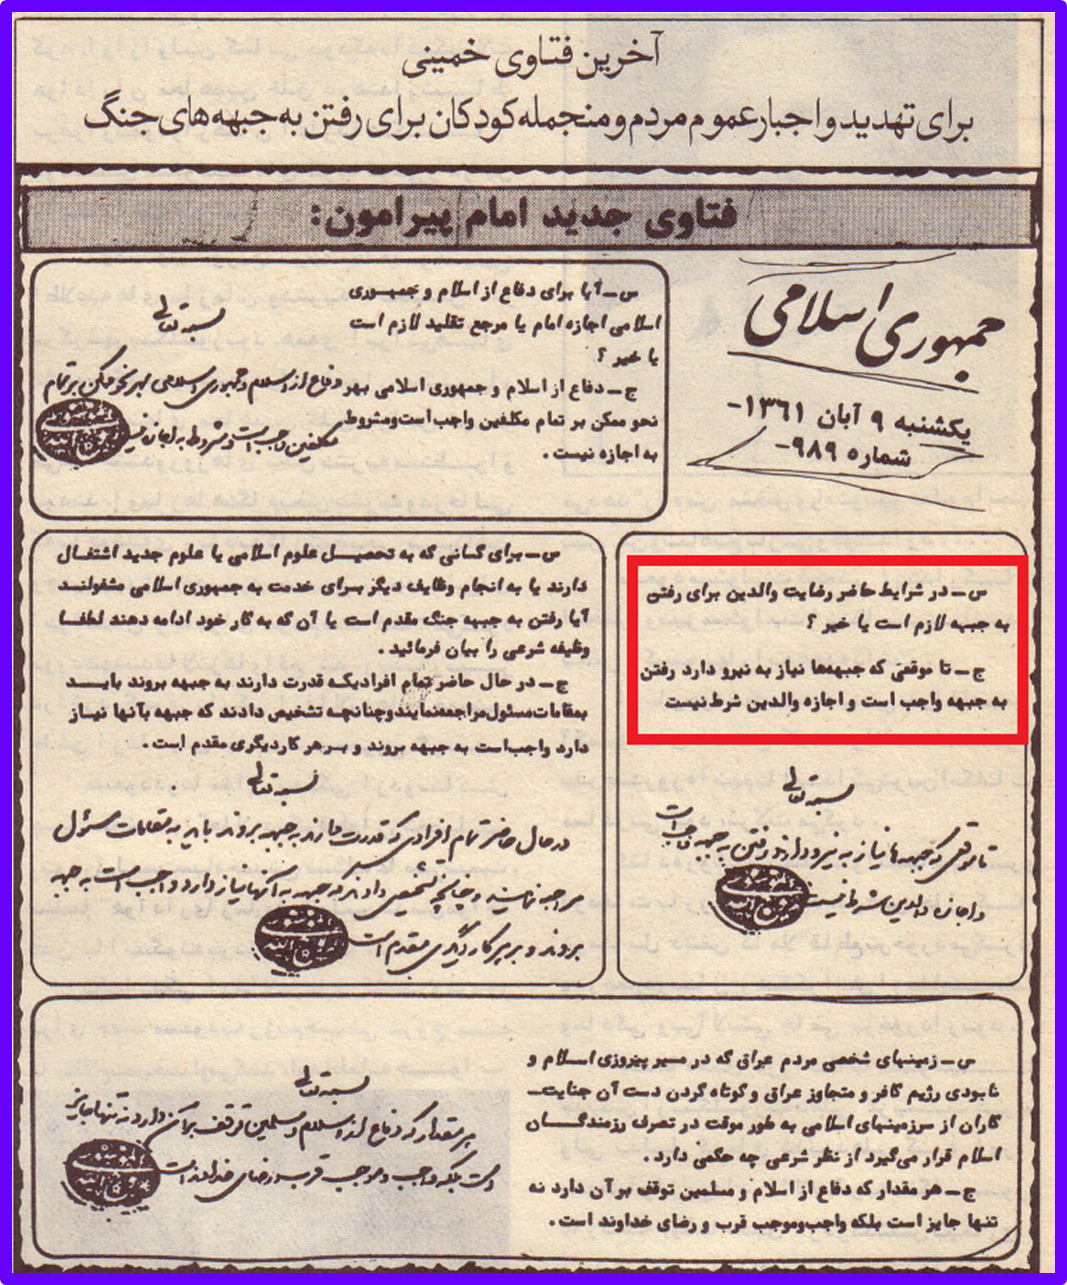 آخرین فتاوی خمینی
برای تهدید و اجبار عموم مردم و منجمله کودکان برای رفتن به جبهه‌های جنگ
فتاوی جدید امام پیرامون:
جمهوری اسلامی
یکشنبه ۹ آبان ۱۳۶۱-
شماره ۹۸۹-
س ـ آیا برای دفاع از اسلام و جمهوری
اسلامی اجازه امام یا مرجع تقلید لازم است
یا خیر ؟
ج ـ دفاع از اسلام و جمهوری اسلامی بهر
نحو ممکن بر تمام مکلفین واجب است و مشروط
به اجازه نیست .
بسمه تعالی
دفاع از اسلام و جمهوری اسلامی بهر نحو ممکن بر تمام
مکلفین واجب است و مشروط به اجازه نیست
س ـ در شرایط حاضر رضایت والدین برای رفتن
به جبهه لازم است یا خیر ؟
ج ـ تا موقعی که جبهه‌ها نیاز به نیرو دارد رفتن
به جبهه واجب است و اجازه والدین شرط نیست
بسمه تعالی
تا موقعی که جبهه‌ها نیاز به نیرو دارد رفتن به جبهه واجب است
و اجازه والدین شرط نیست
س ـ برای کسانی که به تحصیل علوم اسلامی یا علوم جدید اشتغال
دارند یا به انجام وظایف دیگر برای خدمت به جمهوری اسلامی مشغولند
آیا رفتن به جبهه جنگ مقدم است یا آن که به کار خود ادامه دهند لطفا
وظیفه شرعی را بیان فرمائید .
ج ـ در حال حاضر تمام افرادیکه قدرت دارند به جبهه بروند باید
بمقامات مسئول مراجعه نمایند و چنانچه تشخیص دادند که جبهه بآنها نیاز
دارد واجب است به جبهه بروند و بر هر کار دیگری مقدم است .
بسمه تعالی
در حال حاضر تمام افرادی که قدرت دارند به جبهه بروند باید به مقامات مسئول
مراجعه نمایند و چنانچه تشخیص دادند که جبهه به آنها نیاز دارد واجب است به جبهه
بروند و بر هر کار دیگری مقدم است
س ـ زمینهای شخصی مردم عراق که در مسیر پیروزی اسلام و
نابودی رژیم کافر و متجاوز عراق و کوتاه کردن دست آن جنایت‌ـ
کاران از سرزمینهای اسلامی به طور موقت در تصرف رزمندگان
اسلام قرار می‌گیرد از نظر شرعی چه حکمی دارد .
ج ـ هر مقدار که دفاع از اسلام و مسلمین توقف بر آن دارد نه
تنها جایز است بلکه واجب و موجب قرب و رضای خداوند است .
بسمه تعالی
هر مقدار که دفاع از اسلام و مسلمین توقف بر آن دارد نه تنها جایز
است بلکه واجب و موجب قرب و رضای خداوند است